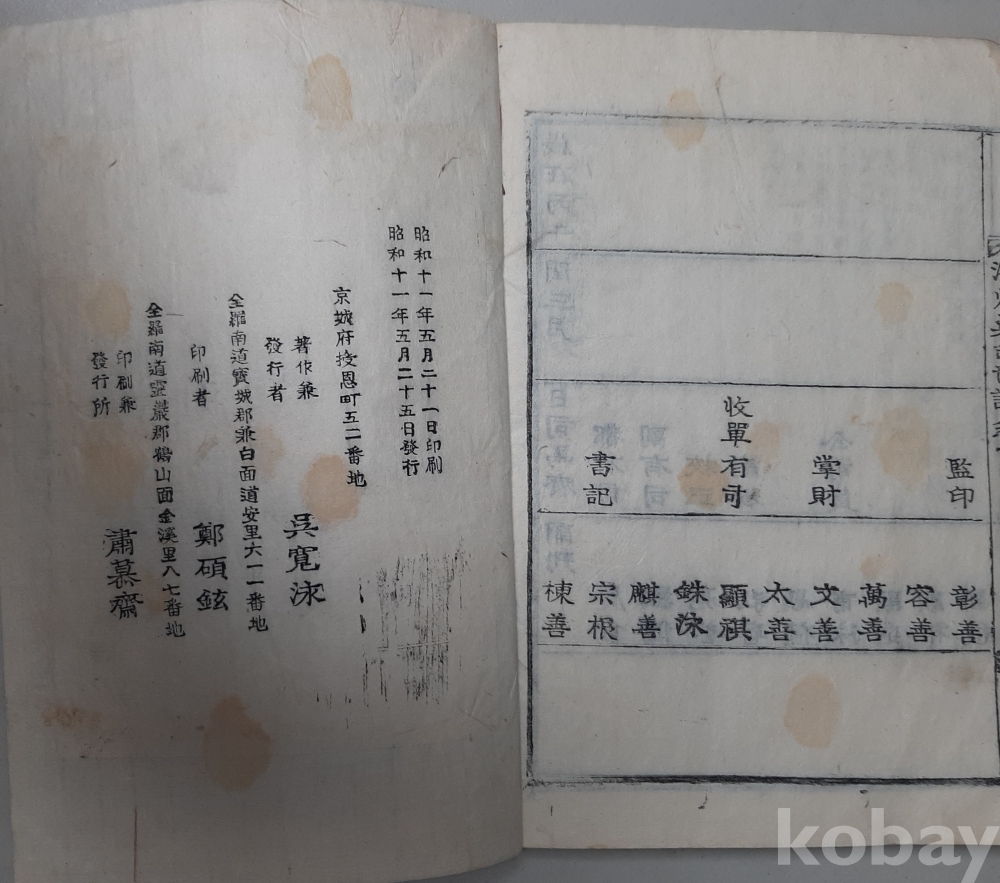 監印
掌財
收單有司
書記
彰善
容善
萬善
文善
太善
顯祺
銖泳
麒善
宗根
棟善
昭和十一年五月二十一日印刷
昭和十一年五月二十五日發行
京城府授恩町五二番地
著作兼
發行者
吳寬泳
全羅南道寶城郡兼白面道安里六一一番地
印刷者
鄭碩鉉
全羅南道靈巖郡鶴山面金溪里八七番地
印刷兼
發行所
肅慕齋
kobay